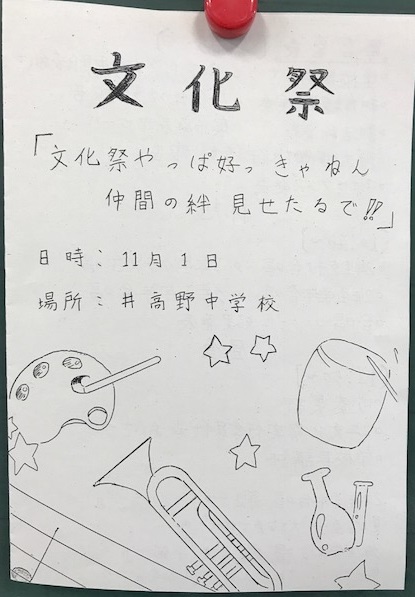 文化祭
「文化祭やっぱ好っきゃねん
仲間の絆 見せたるで!!」
日時：11月1日
場所：井高野中学校